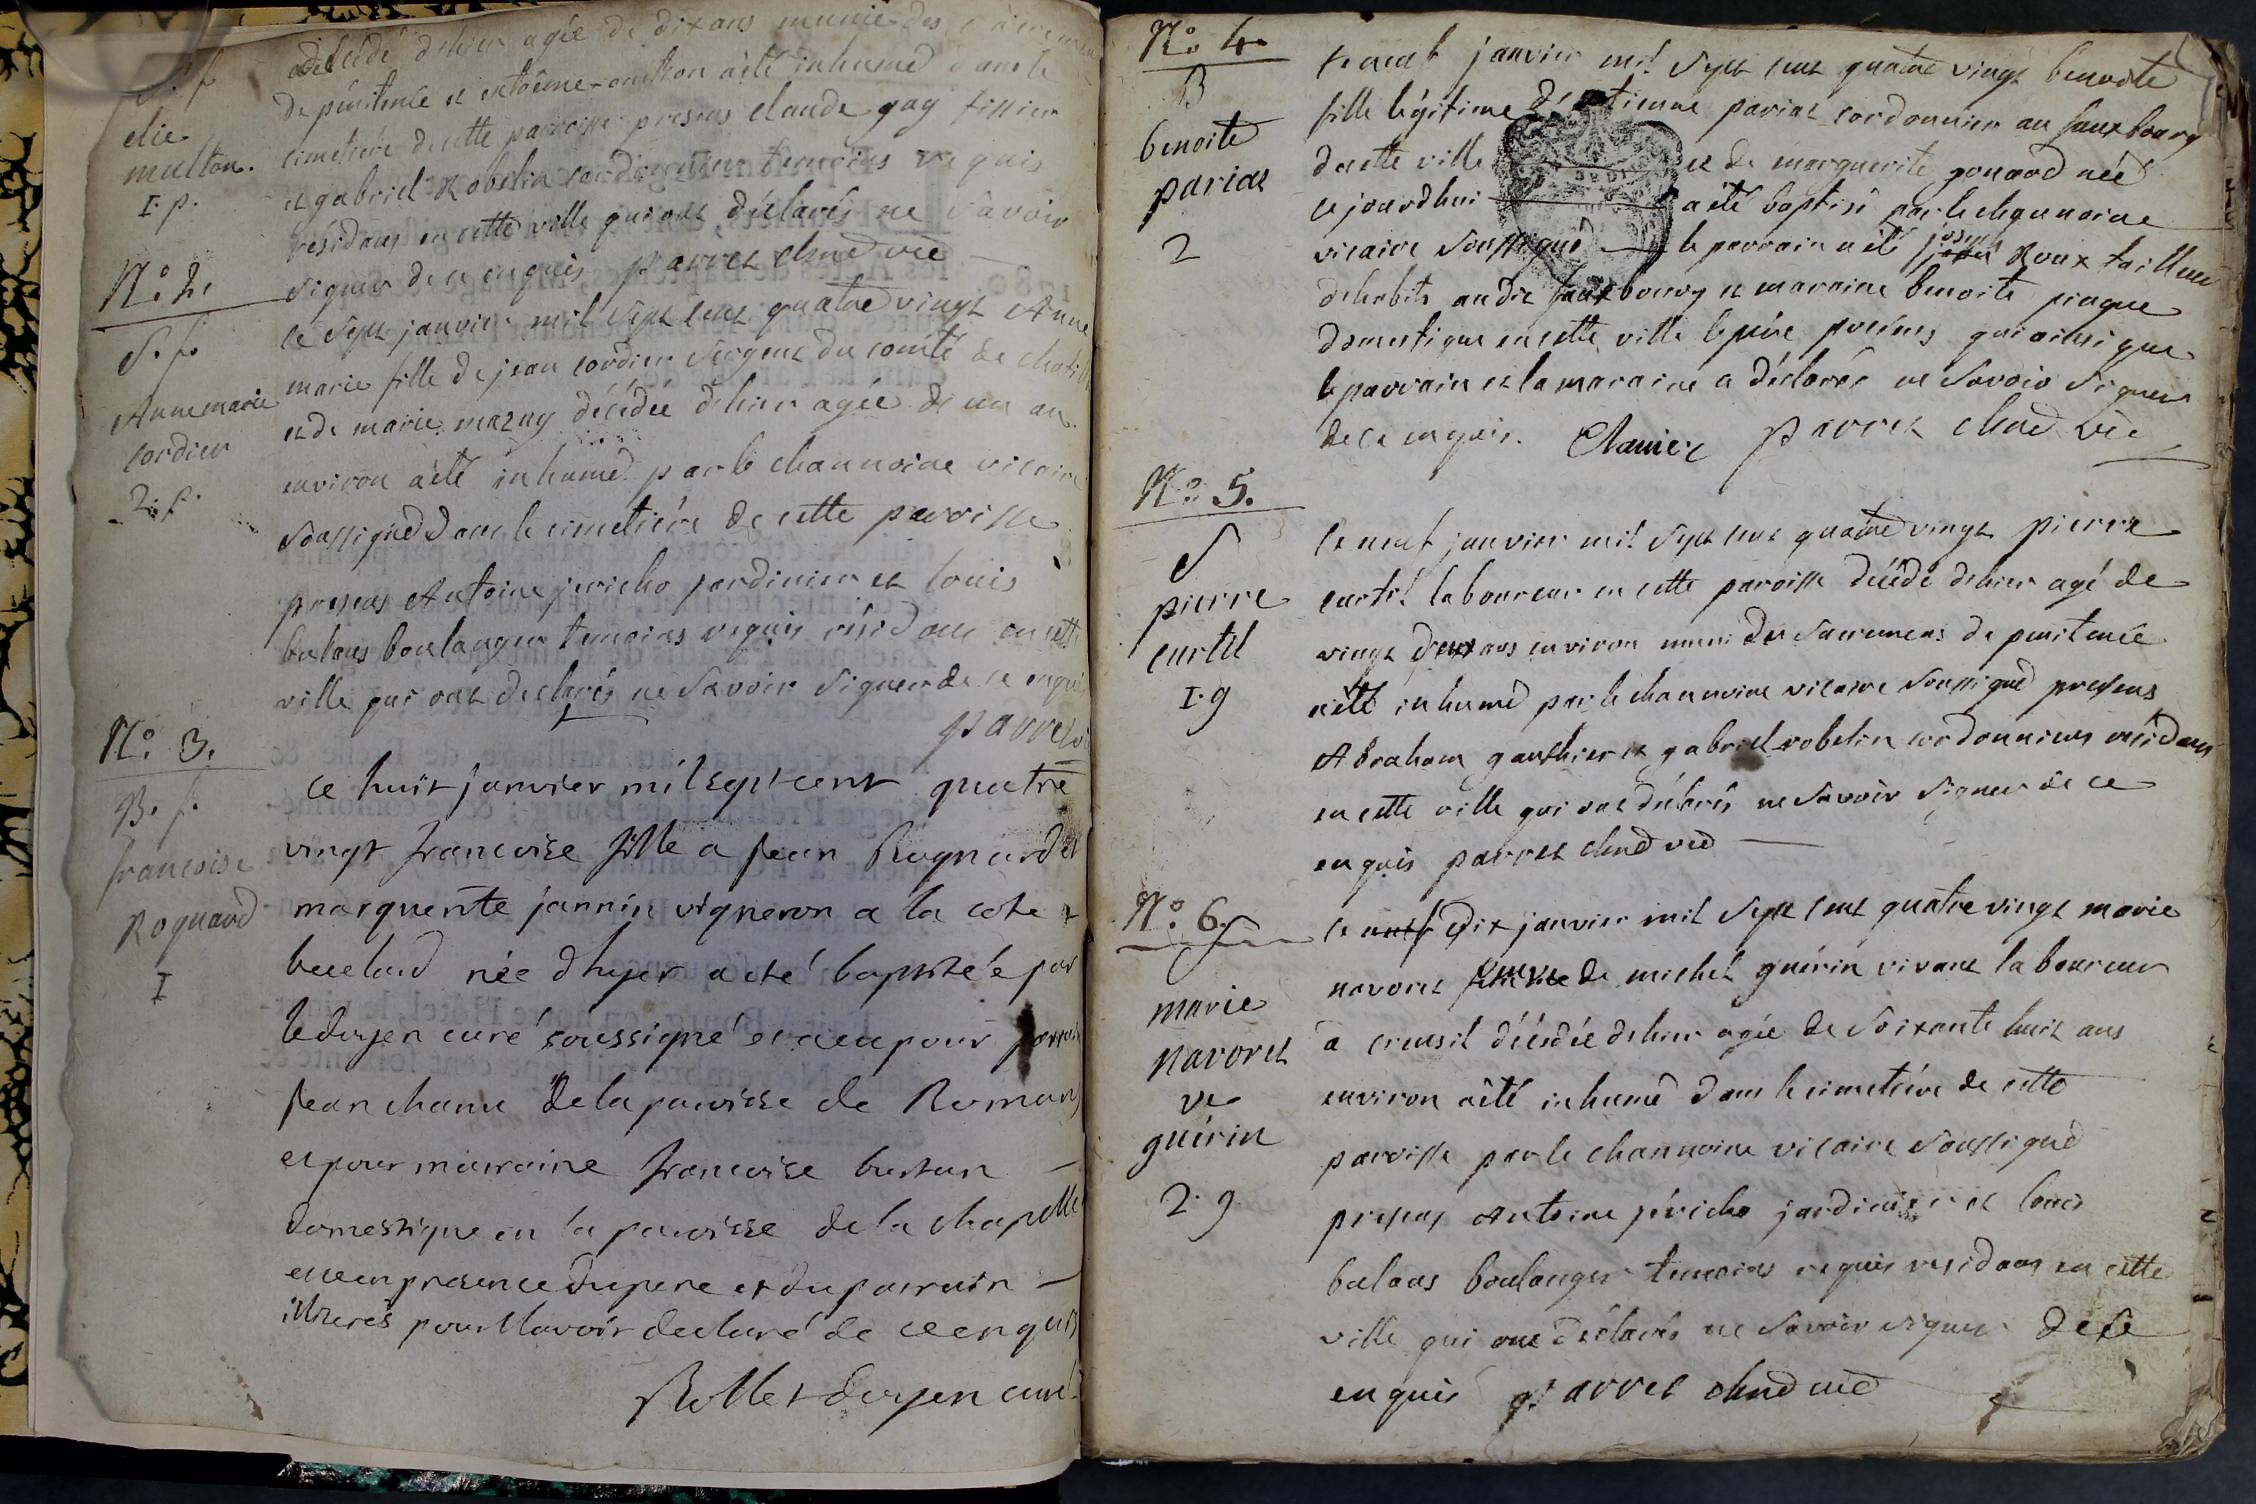 décédé d'hier agée de dix ans munie des
de pénitence et extrême-onction a été inhumé dans le
cimetière de cette paroisse presens claude gay
et gabriel Robelin cordonniers temoins requis
résidans en cette ville qui ont déclarés ne sçavoir
signer de ce enquis parret chne vic
elie
multon.
I. p.
No. 2.
S. f.
Anne marie
Cordier
2. p.
le sept janvier mil sept cent quatre vingt Anne
marie fille de jean Cordier sergent du comté de
et de marie mazuy décédée d'hier agée de un an
environ a été inhumé par le channoine vicaire
soussigné dans le cimetière de cette paroisse
presens Antoine jericho jardinier et louis
balaas boulanger temoins requis résidans en cette
ville qui ont declarés ne savoir signer de ce enquis
parret
No. 3.
B. f.
francoise
Roguard
I
ce huit janvier mil sept cent quatre
vingt francoise fille a jean Rognard et
marguerite jannin vigneron a la cote
née dhyer a eté baptisée par
le doyen curé soussigné et a eu pour parrain
jean chanu de la paroisse de Romans
et pour marraine francoise
domestique en la paroisse de la chapelle
en presence du pere et du parrain
illiterés pour l'avoir declaré de ce enquis
Rollet doyen curé
No. 4.
B
benoite
pariat
2
le neuf janvier mil sept cent quatre vingt benoite
fille légitime d'étienne pariat cordonnier au fauxbourg
de cette ville et de marguerite gonard née
ce jourd'hui a été baptisé par le channoine
vicaire soussigné le parrain a été joseph Roux tailleur
d'habits au dit fauxbourg et marraine benoite
domestique en cette ville le père présens qui ainsi que
le parrain et la maraine a déclarés ne savoir signer
de ce enquis. Chanier parret chne vic
No. 5.
S
pierre
curtil
I. g
le neuf janvier mil sept cent quatre vingt pierre
curtil laboureur en cette paroisse décédé d'hier agé de
vingt deux ans environ muni des sacremens de penitence
a été inhumé par le channoine vicaire soussigné presens
Abraham gauthier et gabriel robelin cordonniers résidans
en cette ville qui ont déclarés ne savoir signer de ce
enquis parret chne vic
No. 6.
S
marie
navoret
ve
guérin
2. g
le neuf dix janvier mil sept cent quatre vingt marie
navoret veuve de michel guérin vivant laboureur
a creusil décédée d'hier agée de soixante huit ans
environ a été inhumé dans le cimetière de cette
paroisse par le channoine vicaire soussigné
presens Antoine jéricho jardinier et louis
balaas boulanger temoins requis residans en cette
ville qui ont déclarés ne savoir signer de ce
enquis parret chne vic